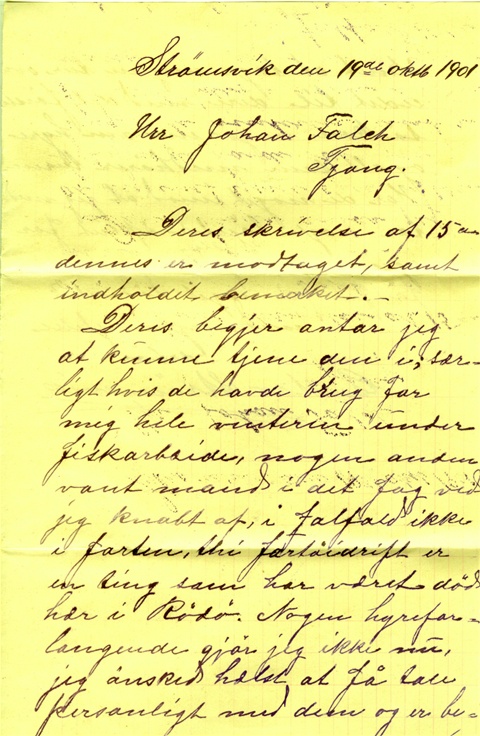 Strömsvik den 19de oktb 1901
Hrr Johan Falch
Tjong.
Deres skrivelse af 15de
dennes er modtaget, samt
indholdet bemærket. -
Deris begjer antar jeg
at kunne tjene dem i, sær-
ligt hvis de havde brug for
mig hele vinterin under
fiskarbeide, nogen anden
vant mand i det fag ved
jeg knabt af, i falfald ikke
i farten, thi fartöidrift er
en ting som har været död
hær i Rödö. Nogen hyrefor-
langende gjör jeg ikke nu,
jeg önsked hælst at få tale
personligt med dem og er be-